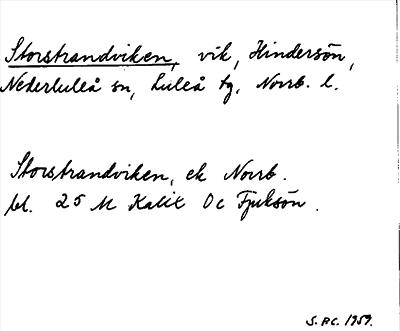 Storstrandviken, vik, Hindersön,
Nederluleå sn, Luleå tg, Norrb. l.
Storstrandviken, ek Norrb.
bl. 25 M Kalix Oc Fjuksön.
S. PC. 1959.